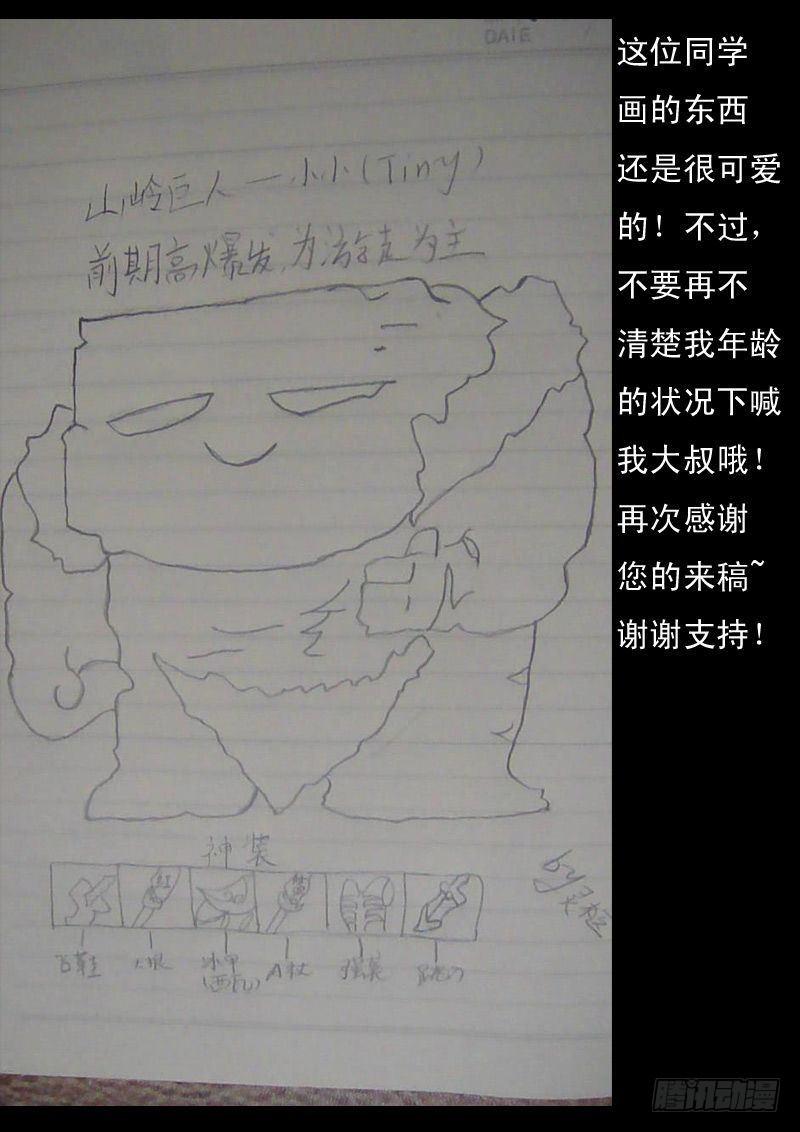 DATE
山岭巨人一小小(Tiny)
前期高爆发,为主
神装
飞鞋
大根
冰甲
(西瓦)
A杖
强袭
跳刀
by
这位同学
画的东西
还是很可爱
的！不过，
不要再不
清楚我年龄
的状况下喊
我大叔哦！
再次感谢
您的来稿~
谢谢支持！
腾讯动漫